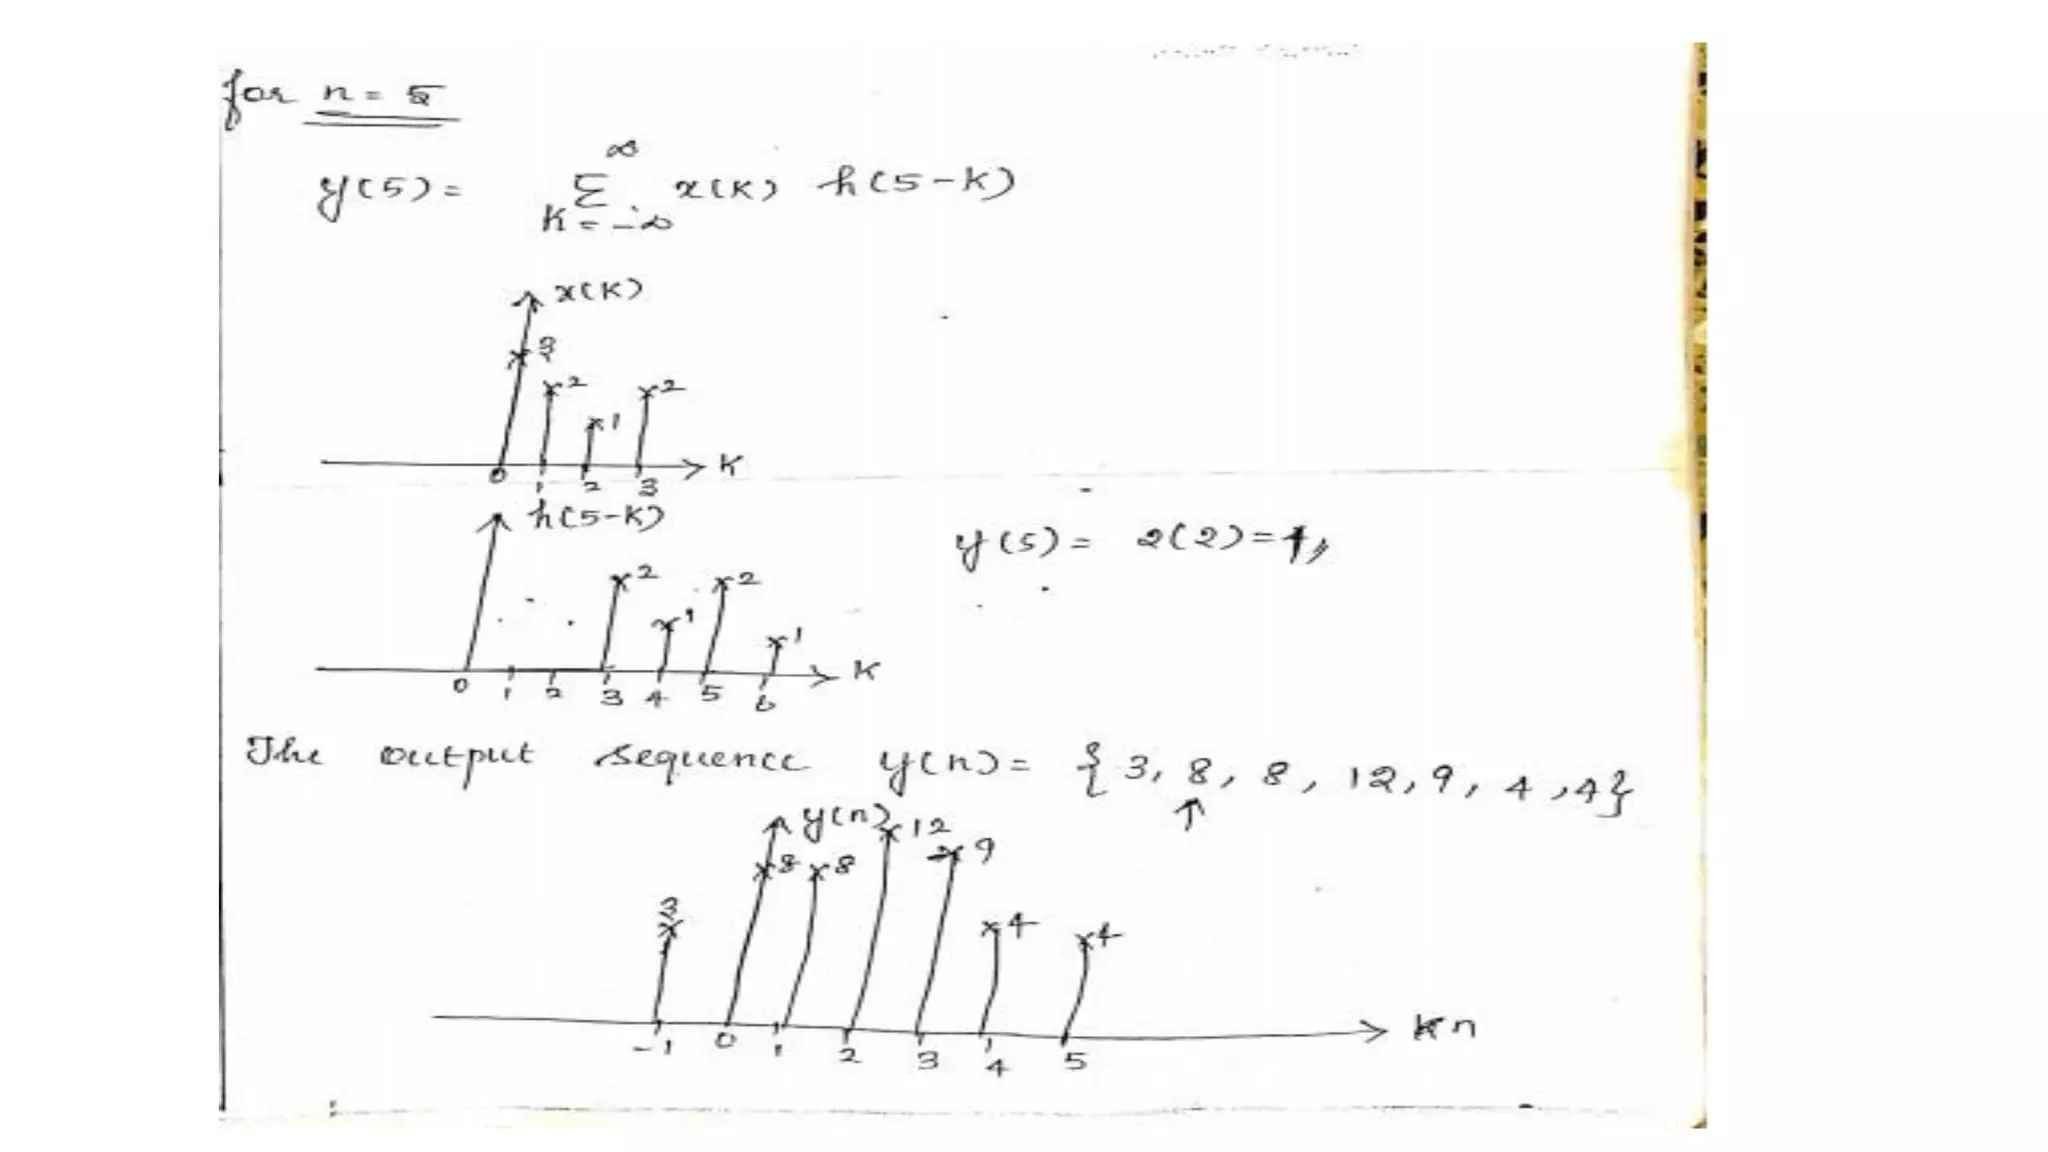 for n = 5
y(5) = ∞ Σ k = -∞ x(k) h(5-k)
x(k)
3 2 1 2
0 1 2 3 k
h(5-k)
y(5) = 2(2) = 4
2 1 2 1
0 1 2 3 4 5 6 k
The output sequence y(n) = { 3, 8, 8, 12, 9, 4, 4}
↑
y(n)
3 8 8 12 9 4 4
-1 0 1 2 3 4 5 n